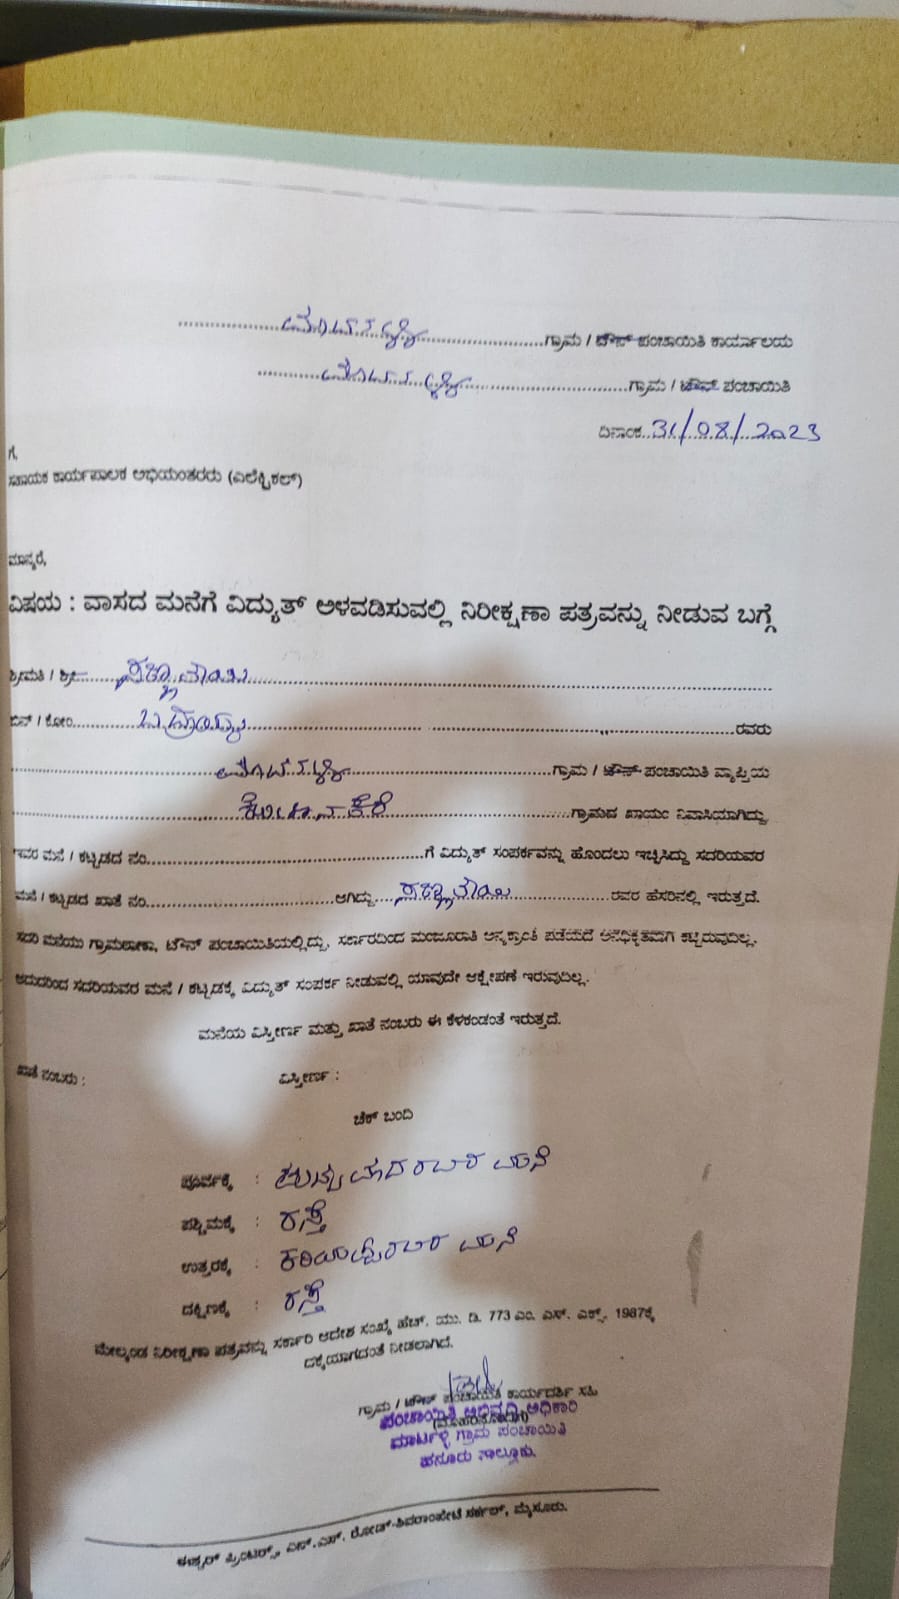 ಮಾರ್ಟಳ್ಳಿ ಗ್ರಾಮ / ಟೌನ್ ಪಂಚಾಯಿತಿ ಕಾರ್ಯಾಲಯ
ಮಾರ್ಟಳ್ಳಿ ಗ್ರಾಮ / ಟೌನ್ ಪಂಚಾಯಿತಿ
ದಿನಾಂಕ 31/08/2023
ಗೆ,
ಸಹಾಯಕ ಕಾರ್ಯಪಾಲಕ ಅಭಿಯಂತರರು (ಎಲೆಕ್ಟ್ರಿಕಲ್)
ಮಾನ್ಯರೆ,
ವಿಷಯ : ವಾಸದ ಮನೆಗೆ ವಿದ್ಯುತ್ ಅಳವಡಿಸುವಲ್ಲಿ ನಿರೀಕ್ಷಣಾ ಪತ್ರವನ್ನು ನೀಡುವ ಬಗ್ಗೆ
ಶ್ರೀಮತಿ / ಶ್ರೀ
ಬಿನ್ / ಕೋಂ ರವರು
ಮಾರ್ಟಳ್ಳಿ ಗ್ರಾಮ / ಟೌನ್ ಪಂಚಾಯಿತಿ ವ್ಯಾಪ್ತಿಯ
ಗ್ರಾಮದ ಖಾಯಂ ನಿವಾಸಿಯಾಗಿದ್ದು
ಇವರ ಮನೆ / ಕಟ್ಟಡದ ನಂ. ಗೆ ವಿದ್ಯುತ್ ಸಂಪರ್ಕವನ್ನು ಹೊಂದಲು ಇಚ್ಛಿಸಿದ್ದು ಸದರಿಯವರ
ಮನೆ / ಕಟ್ಟಡದ ಖಾತೆ ನಂ. ಆಗಿದ್ದು ರವರ ಹೆಸರಿನಲ್ಲಿ ಇರುತ್ತದೆ.
ಸದರಿ ಮನೆಯು ಗ್ರಾಮಠಾಣಾ, ಟೌನ್ ಪಂಚಾಯಿತಿಯಲ್ಲಿದ್ದು, ಸರ್ಕಾರದಿಂದ ಮಂಜೂರಾತಿ ಅನ್ಯಕ್ರಾಂತ ಪಡೆಯದೆ ಅನಧಿಕೃತವಾಗಿ ಕಟ್ಟಿರುವುದಿಲ್ಲ.
ಆದುದರಿಂದ ಸದರಿಯವರ ಮನೆ / ಕಟ್ಟಡಕ್ಕೆ ವಿದ್ಯುತ್ ಸಂಪರ್ಕ ನೀಡುವಲ್ಲಿ ಯಾವುದೇ ಆಕ್ಷೇಪಣೆ ಇರುವುದಿಲ್ಲ.
ಮನೆಯ ವಿಸ್ತೀರ್ಣ ಮತ್ತು ಖಾತೆ ನಂಬರು ಈ ಕೆಳಕಂಡಂತೆ ಇರುತ್ತದೆ.
ಖಾತೆ ನಂಬರು : ವಿಸ್ತೀರ್ಣ :
ಚೆಕ್ ಬಂದಿ
ಪೂರ್ವಕ್ಕೆ : ರವರ ಮನೆ
ಪಶ್ಚಿಮಕ್ಕೆ : ರಸ್ತೆ
ಉತ್ತರಕ್ಕೆ : ರವರ ಮನೆ
ದಕ್ಷಿಣಕ್ಕೆ : ರಸ್ತೆ
ಮೇಲ್ಕಂಡ ನಿರೀಕ್ಷಣಾ ಪತ್ರವನ್ನು ಸರ್ಕಾರಿ ಆದೇಶ ಸಂಖ್ಯೆ ಹೆಚ್. ಯು. ಡಿ. 773 ಎಂ. ಎಸ್. ಎಕ್ಸ್. 1987ಕ್ಕೆ
ದಕ್ಕೆಯಾಗದಂತೆ ನೀಡಲಾಗಿದೆ.
ಗ್ರಾಮ / ಟೌನ್ ಪಂಚಾಯಿತಿ ಕಾರ್ಯದರ್ಶಿ ಸಹಿ
ಪಂಚಾಯಿತಿ ಅಭಿವೃದ್ಧಿ ಅಧಿಕಾರಿ
ಮಾರ್ಟಳ್ಳಿ ಗ್ರಾಮ ಪಂಚಾಯಿತಿ
ಹನೂರು ತಾಲ್ಲೂಕು.
ಈಶ್ವರ್ ಪ್ರಿಂಟರ್ಸ್, ಎನ್.ಎಸ್. ರೋಡ್-ಶಿವರಾಂಪೇಟೆ ಸರ್ಕಲ್, ಮೈಸೂರು.